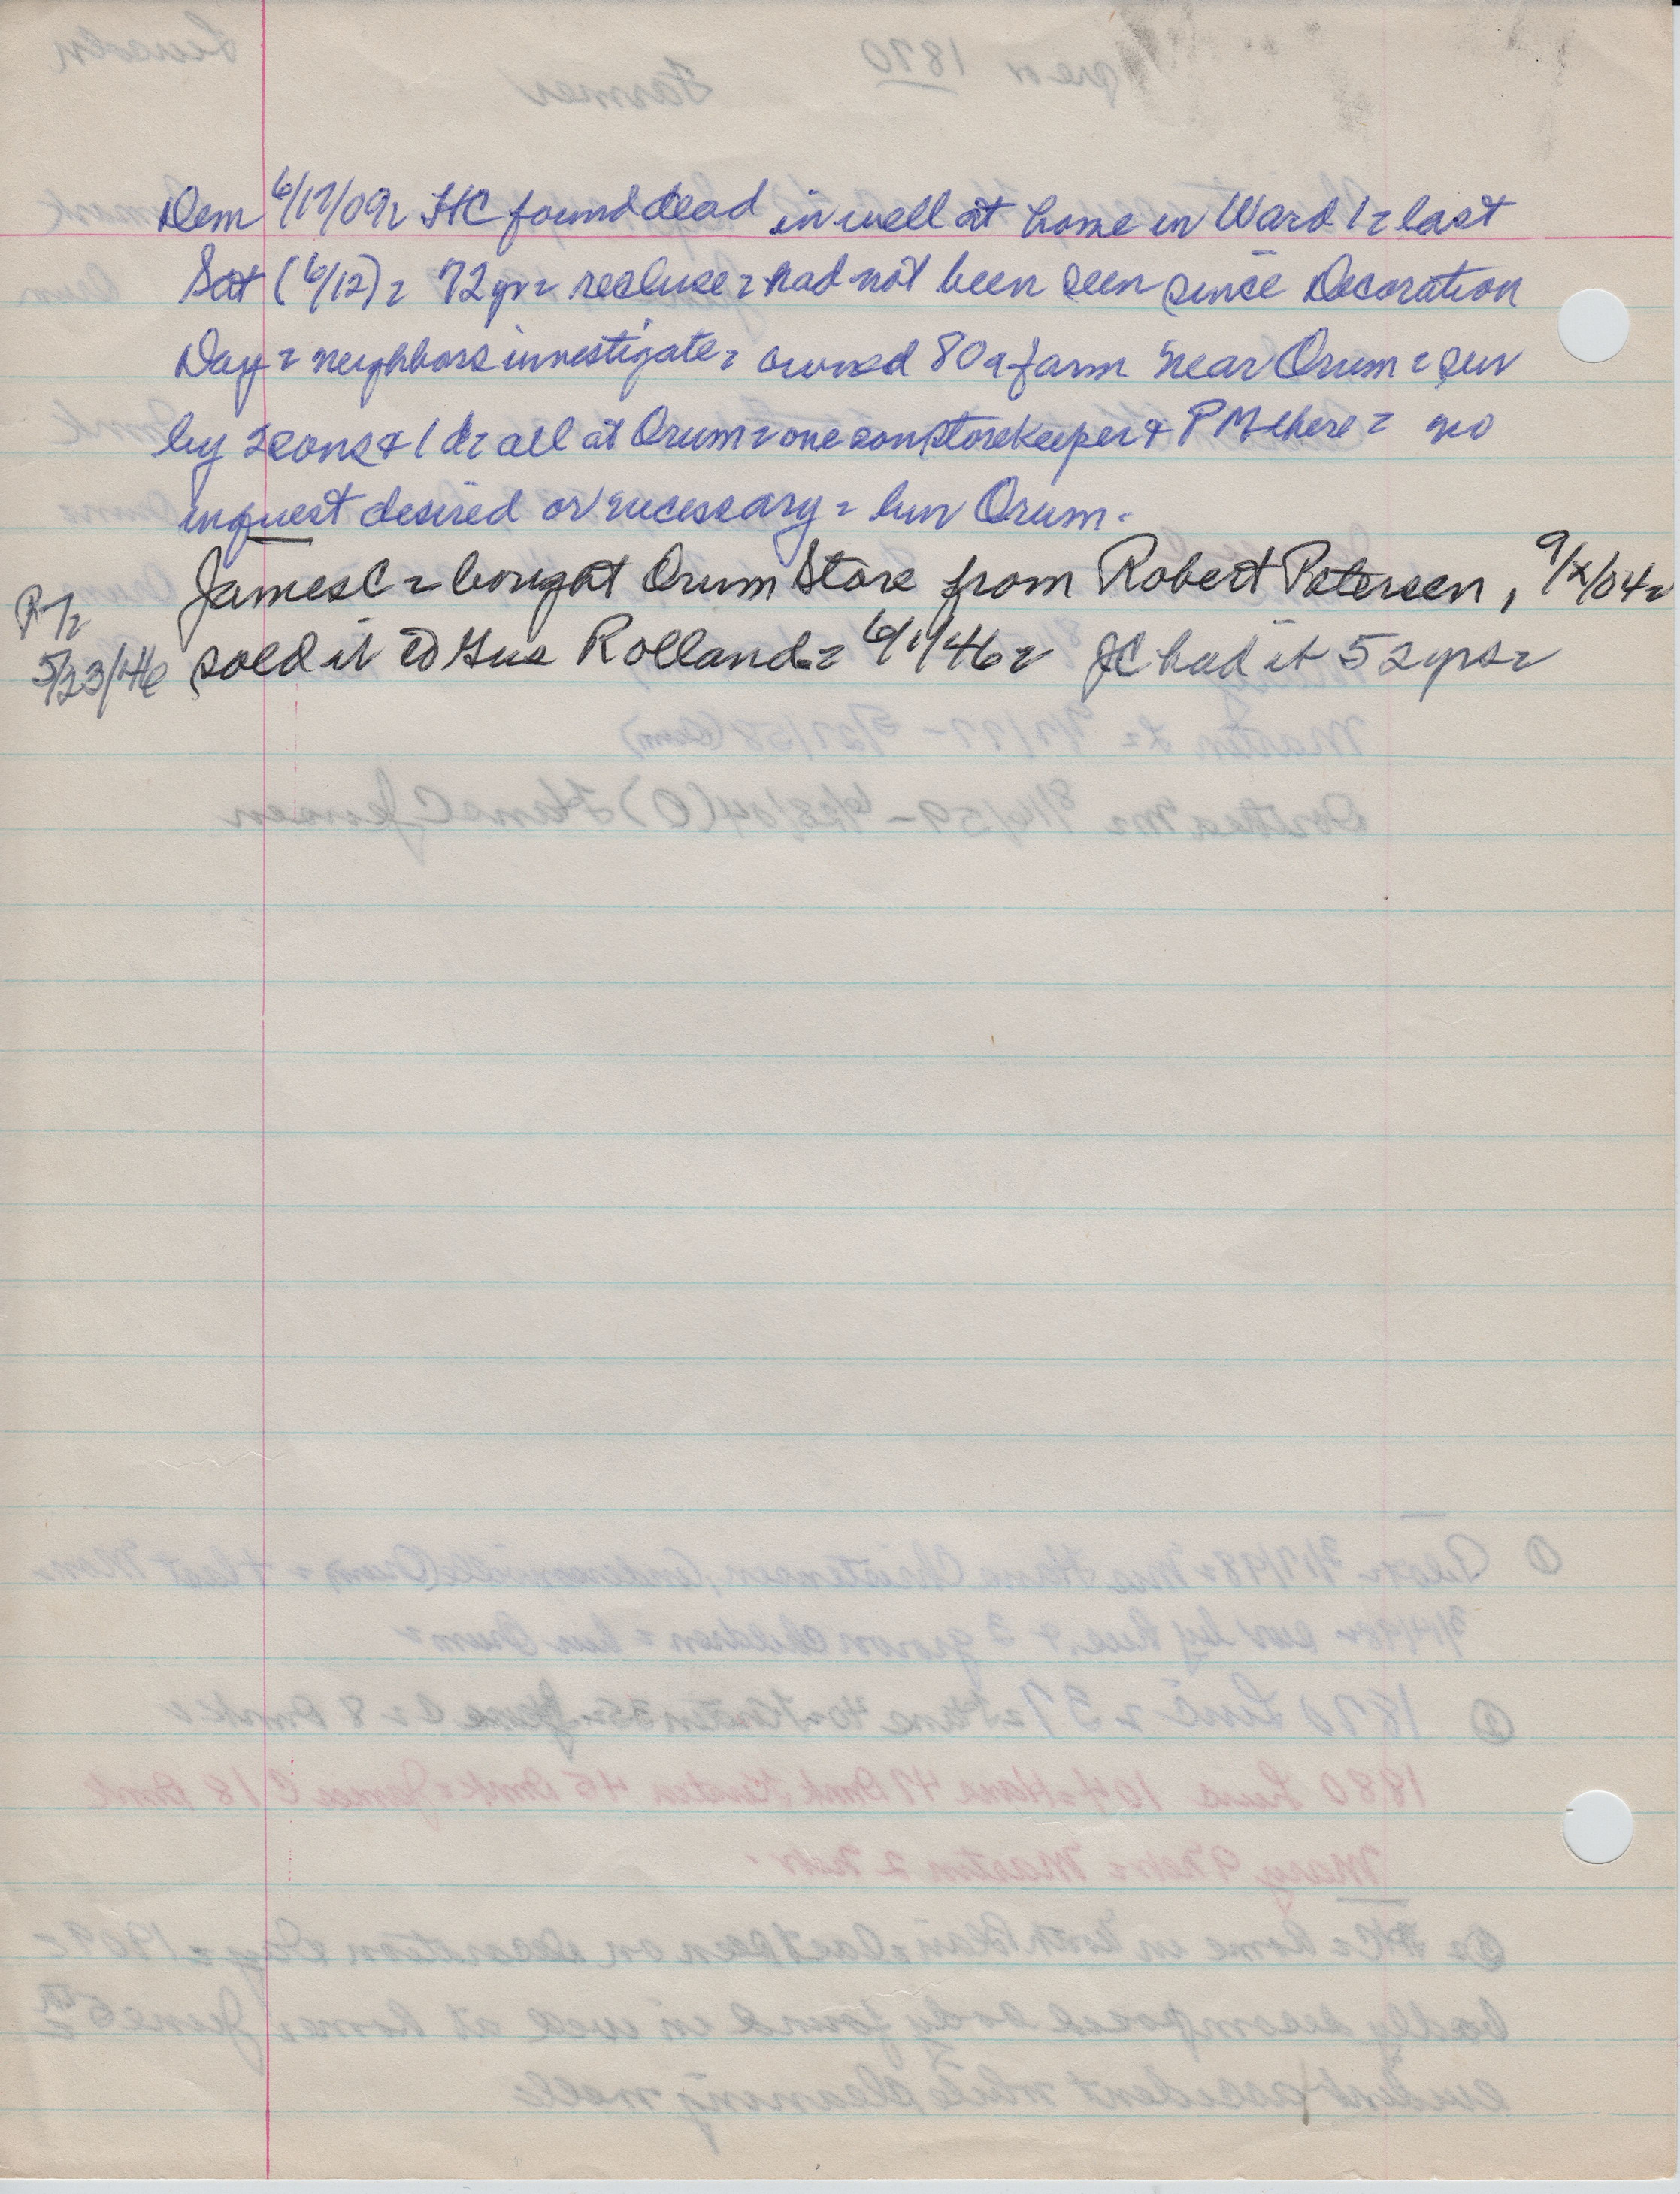 Dem 6/17/09 = HC found dead in well at home in Ward 1 = last
Sat (6/12) = 72 yr = recluse = had not been seen since Decoration
Day = neighbors investigate = owned 80 a farm near Orum = sur
by 2 sons & 1 d = all at Orum = one son storekeeper & PM there = no
inquest desired or necessary = bur Orum.
James C = bought Orum Store from Robert Petersen, 9/x/04 =
P-T =
5/23/46 sold it to Gus Rolland = 6/1/46 = JC had it 52 yrs =